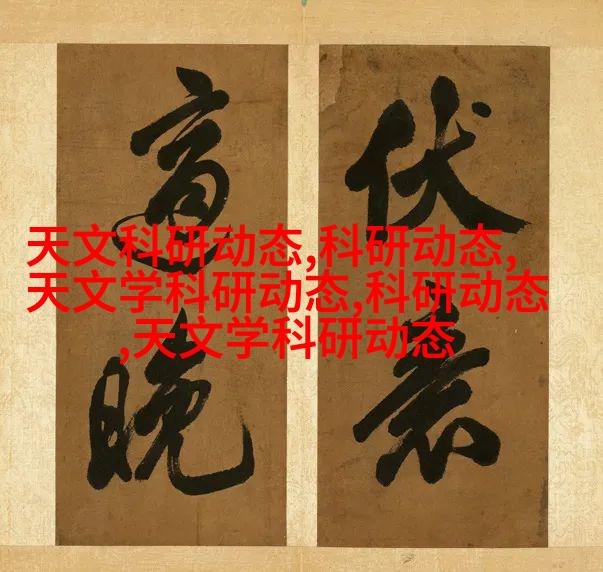 伏
晚
天文科研动态,科研动态,
天文学科研动态,科研动态
,天文学科研动态